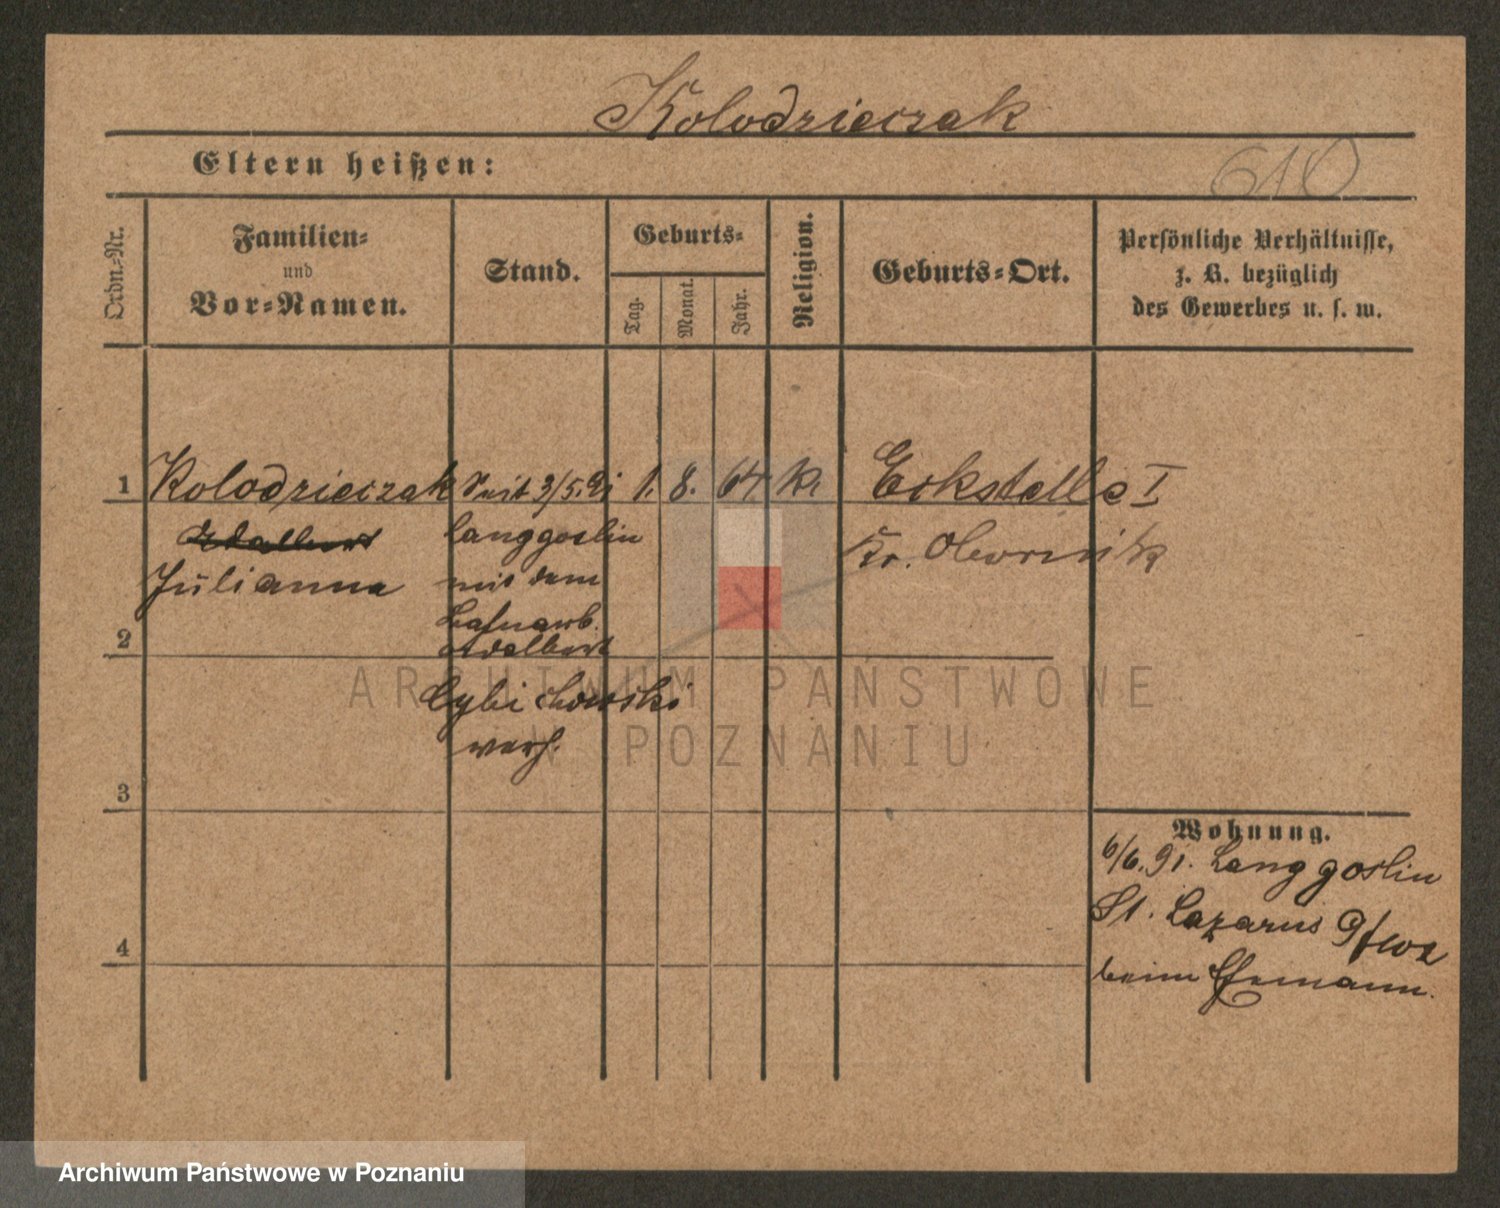 Kolodzieczak
Eltern heißen:
610
Ordn.-Nr.
Familien-
und
Vor-Namen.
Stand.
Geburts-
Tag.
Monat.
Jahr.
Religion.
Geburts-Ort.
Persönliche Verhältnisse,
z. B. bezüglich
des Gewerbes u. s. w.
1 Kolodzieczak Seit 3/5.91 1. 8. 64 K. Eckstelle I
Adalbert Langgoslin Kr. Obornik
Julianna mit dem
Bahnarb.
2 Adalbert
Cybichowski
verh.
ARCHIWUM PAŃSTWOWE
W POZNANIU
3
Wohnung.
6/6.91. Langgoslin
St. Lazarus
4
beim Ehemann.
Archiwum Państwowe w Poznaniu